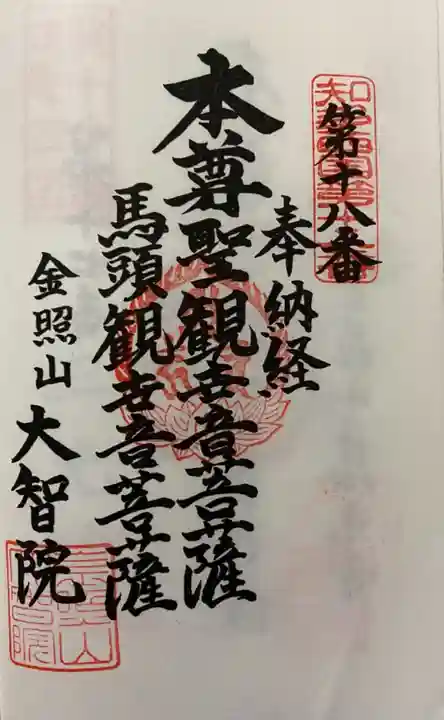 第十八番
奉納経
本尊聖観世音菩薩
馬頭観世音菩薩
金照山 大智院